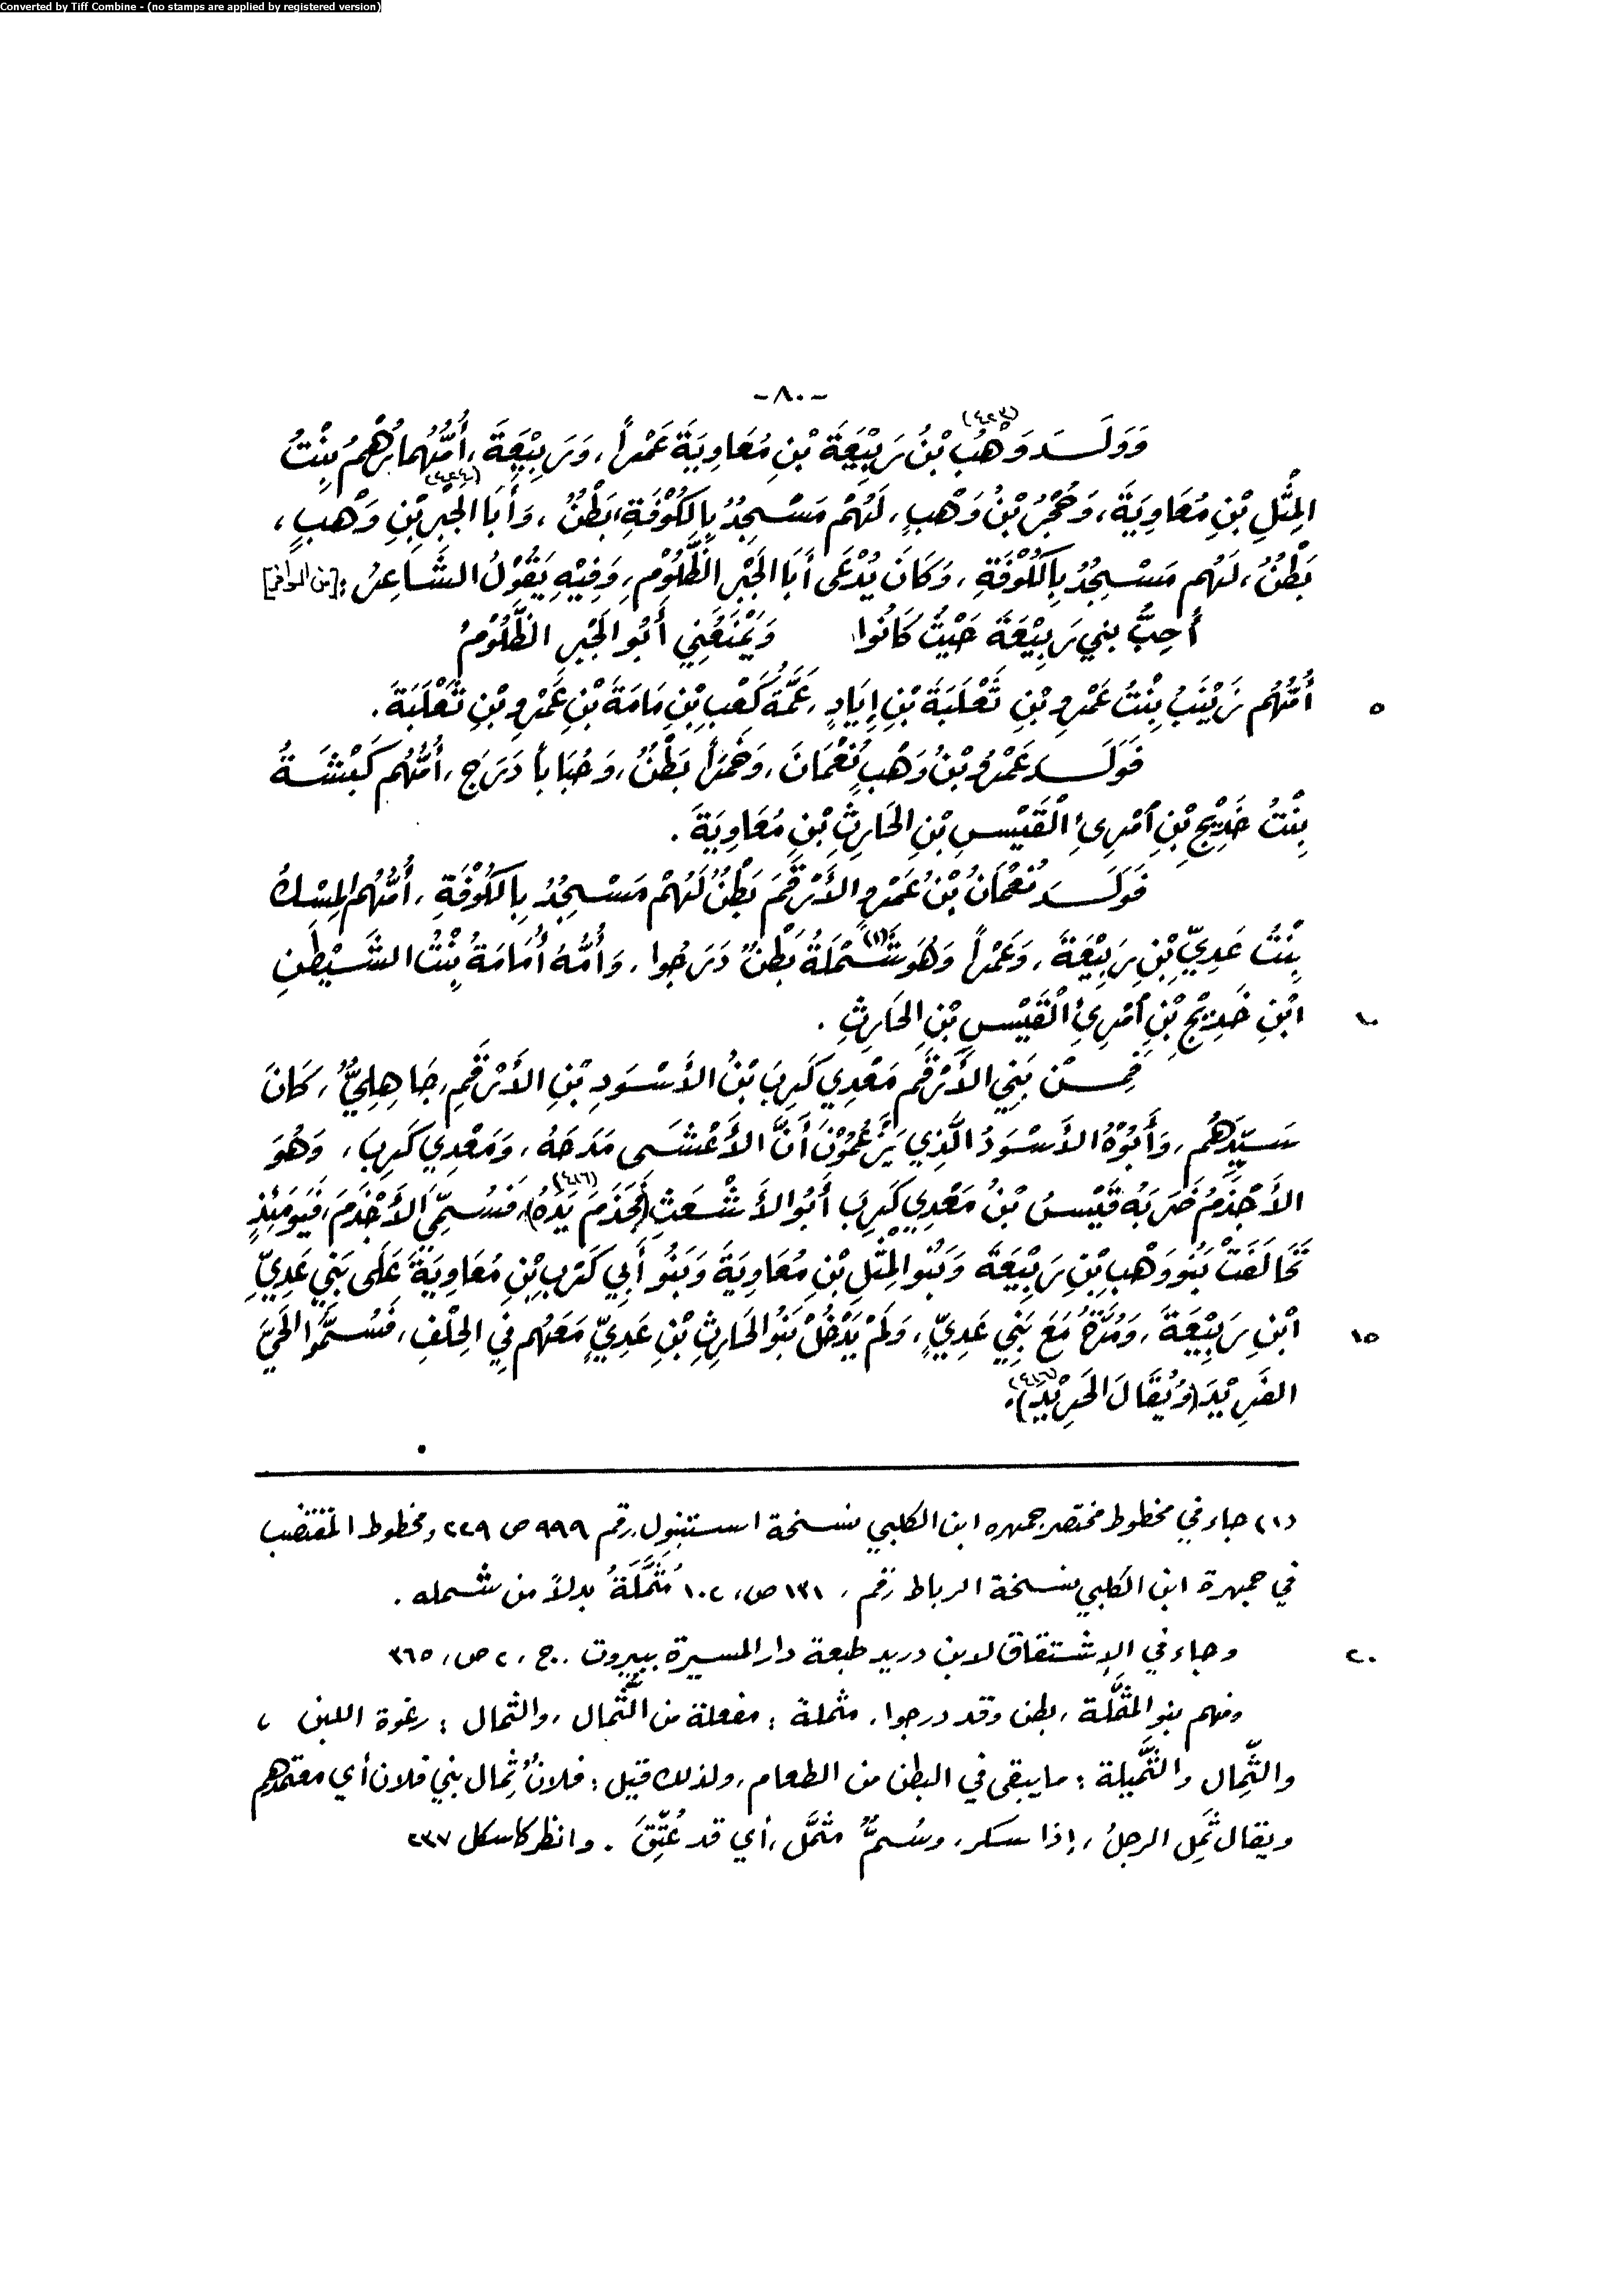 Converted by Tiff Combine - (no stamps are applied by registered version)
-٨٠-
وَوَلَـــدَ وَهْبُ(٤٢٣) بْنُ رَبِيْعَةَ بْنِ مُعَاوِيَةَ عَمْراً، وَرَبِيْعَةَ، أُمُّهُمَا رُهْمُ بِنْتُ
المِثْلِ بْنِ مُعَاوِيَةَ، وَحُجْرُ بْنُ وَهْبٍ، لَهُمْ مَسْجِدٌ بِالكُوْفَةِ، بَطْنٌ، وَأَبَا الجَبْرِ(٤٢٤) بْنِ وَهْبٍ،
بَطْنٌ، لَهُم مَسْجِدٌ بِالكُوْفَةِ، وَكَانَ يُدْعَى أَبَا الجَبْرِ الظَّلُوْمِ، وَفِيْهِ يَقُوْلُ الشَّاعِرُ: [من الوافر]
أُحِبُّ بني رَبِيْعَةَ حَيْثُ كَانُوا وَيَمْنَعُنِي أَبُو الجَبْرِ الظَّلُوْمُ
أُمُّهُم زَيْنَبُ بِنْتُ عَمْرِو بْنِ ثَعْلَبَةَ بْنِ إِيَادٍ، عَمَّةُ كَعْبِ بْنِ مَامَةَ بْنِ عَمْرِو بْنِ ثَعْلَبَةَ. ٥
فَوَلَـــدَ عَمْرُو بْنُ وَهْبٍ نُعْمَانَ، وَخَمَراً بَطْنٌ، وَحُبَاباً دَرَجَ، أُمُّهُم كَبْشَةُ
بِنْتُ خَدِيْجِ بْنِ اُمْرِئِ الْقَيْسِ بْنِ الحَارِثِ بْنِ مُعَاوِيَةَ.
فَوَلَـــدَ نُعْمَانُ بْنُ عَمْرٍو الأَرْقَمَ بَطْنٌ لَهُمْ مَسْجِدٌ بِالكُوْفَةِ، أُمُّهُم المِسْكُ
بِنْتُ عَدِيِّ بْنِ رَبِيْعَةَ، وَعَمْراً وَهُوَ شَمْلَةُ(١) بَطْنٌ دَرَجُوا، وَأُمُّهُ أُمَامَةُ بِنْتُ الشَّيْطَنِ
ابْنِ خَدِيْجِ بْنِ اُمْرِئِ الْقَيْسِ بْنِ الحَارِثِ. ١٠
فَمِـــنْ بَنِي الأَرْقَمِ مَعْدِي كَرِبَ بْنُ الأَسْوَدِ بْنِ الأَرْقَمِ، جَاهِلِيٌّ، كَانَ
سَيِّدَهُم، وَأَبُوْهُ الأَسْوَدُ الَّذِي يَزْعُمُوْنَ أَنَّ الأَعْشَى مَدَحَهُ، وَمَعْدِي كَرِبَ، وَهُوَ
الأَجْذَمُ ضَرَبَهُ قَيْسُ بْنُ مَعْدِي كَرِبَ أَبُو الأَشْعَثِ (فَجَذَمَ يَدَهُ)(٤١٦)، فَسُمِّيَ الأَجْذَمَ، فَيَوْمَئِذٍ
تَحَالَفَتْ بَنُو وَهْبِ بْنِ رَبِيْعَةَ وَبَنُو المِثْلِ بْنِ مُعَاوِيَةَ وَبَنُو أَبِي كَرِبِ بْنِ مُعَاوِيَةَ عَلَى بَنِي عَدِيِّ
ابْنِ رَبِيْعَةَ، وَمُرَّةُ مَعَ بَنِي عَدِيٍّ، وَلَمْ يَدْخُلْ بَنُو الحَارِثِ بْنِ عَدِيٍّ مَعَهُم فِي الحِلْفِ، فَسُمُّوا الحَيَّ ١٥
الفَرِيْدَ (وَيُقَالَ الحَرِيْدَ)(٤١٦).
(١) جاء في مخطوط مختصر جمهره ابن الكلبي نسخة استنبول، رقم ٩٩٩ ص ٢٢٩ ومخطوط المقتضب
في جمهرة ابن الكلبي نسخة الرباط رقم، ١٣١ ص، ١٠٢ مُثَمَّلَةُ بدلاً من شمله.
وجاء في الإشتقاق لابن دريد طبعة دار المسيرة ببيروت. ج، ٢ ص، ٣٦٥ ٢٠
ومنهم بنو المثمَّلة، بطن وقد درجوا، مثملة: مفعلة من الثُّمال، والثمال: رغوة اللبن،
والثِّمال والثَّميلة: ما يبقى في البطن من الطعام، ولذلك قيل: فلانٌ ثِمال بني فلان أي معتمدهم
ويقال ثَمِل الرجلُ، إذا سكر، وسُمٌّ مثمَّل، أي قد عُتِّقَ. وانظر كاسكل ٢٣٧